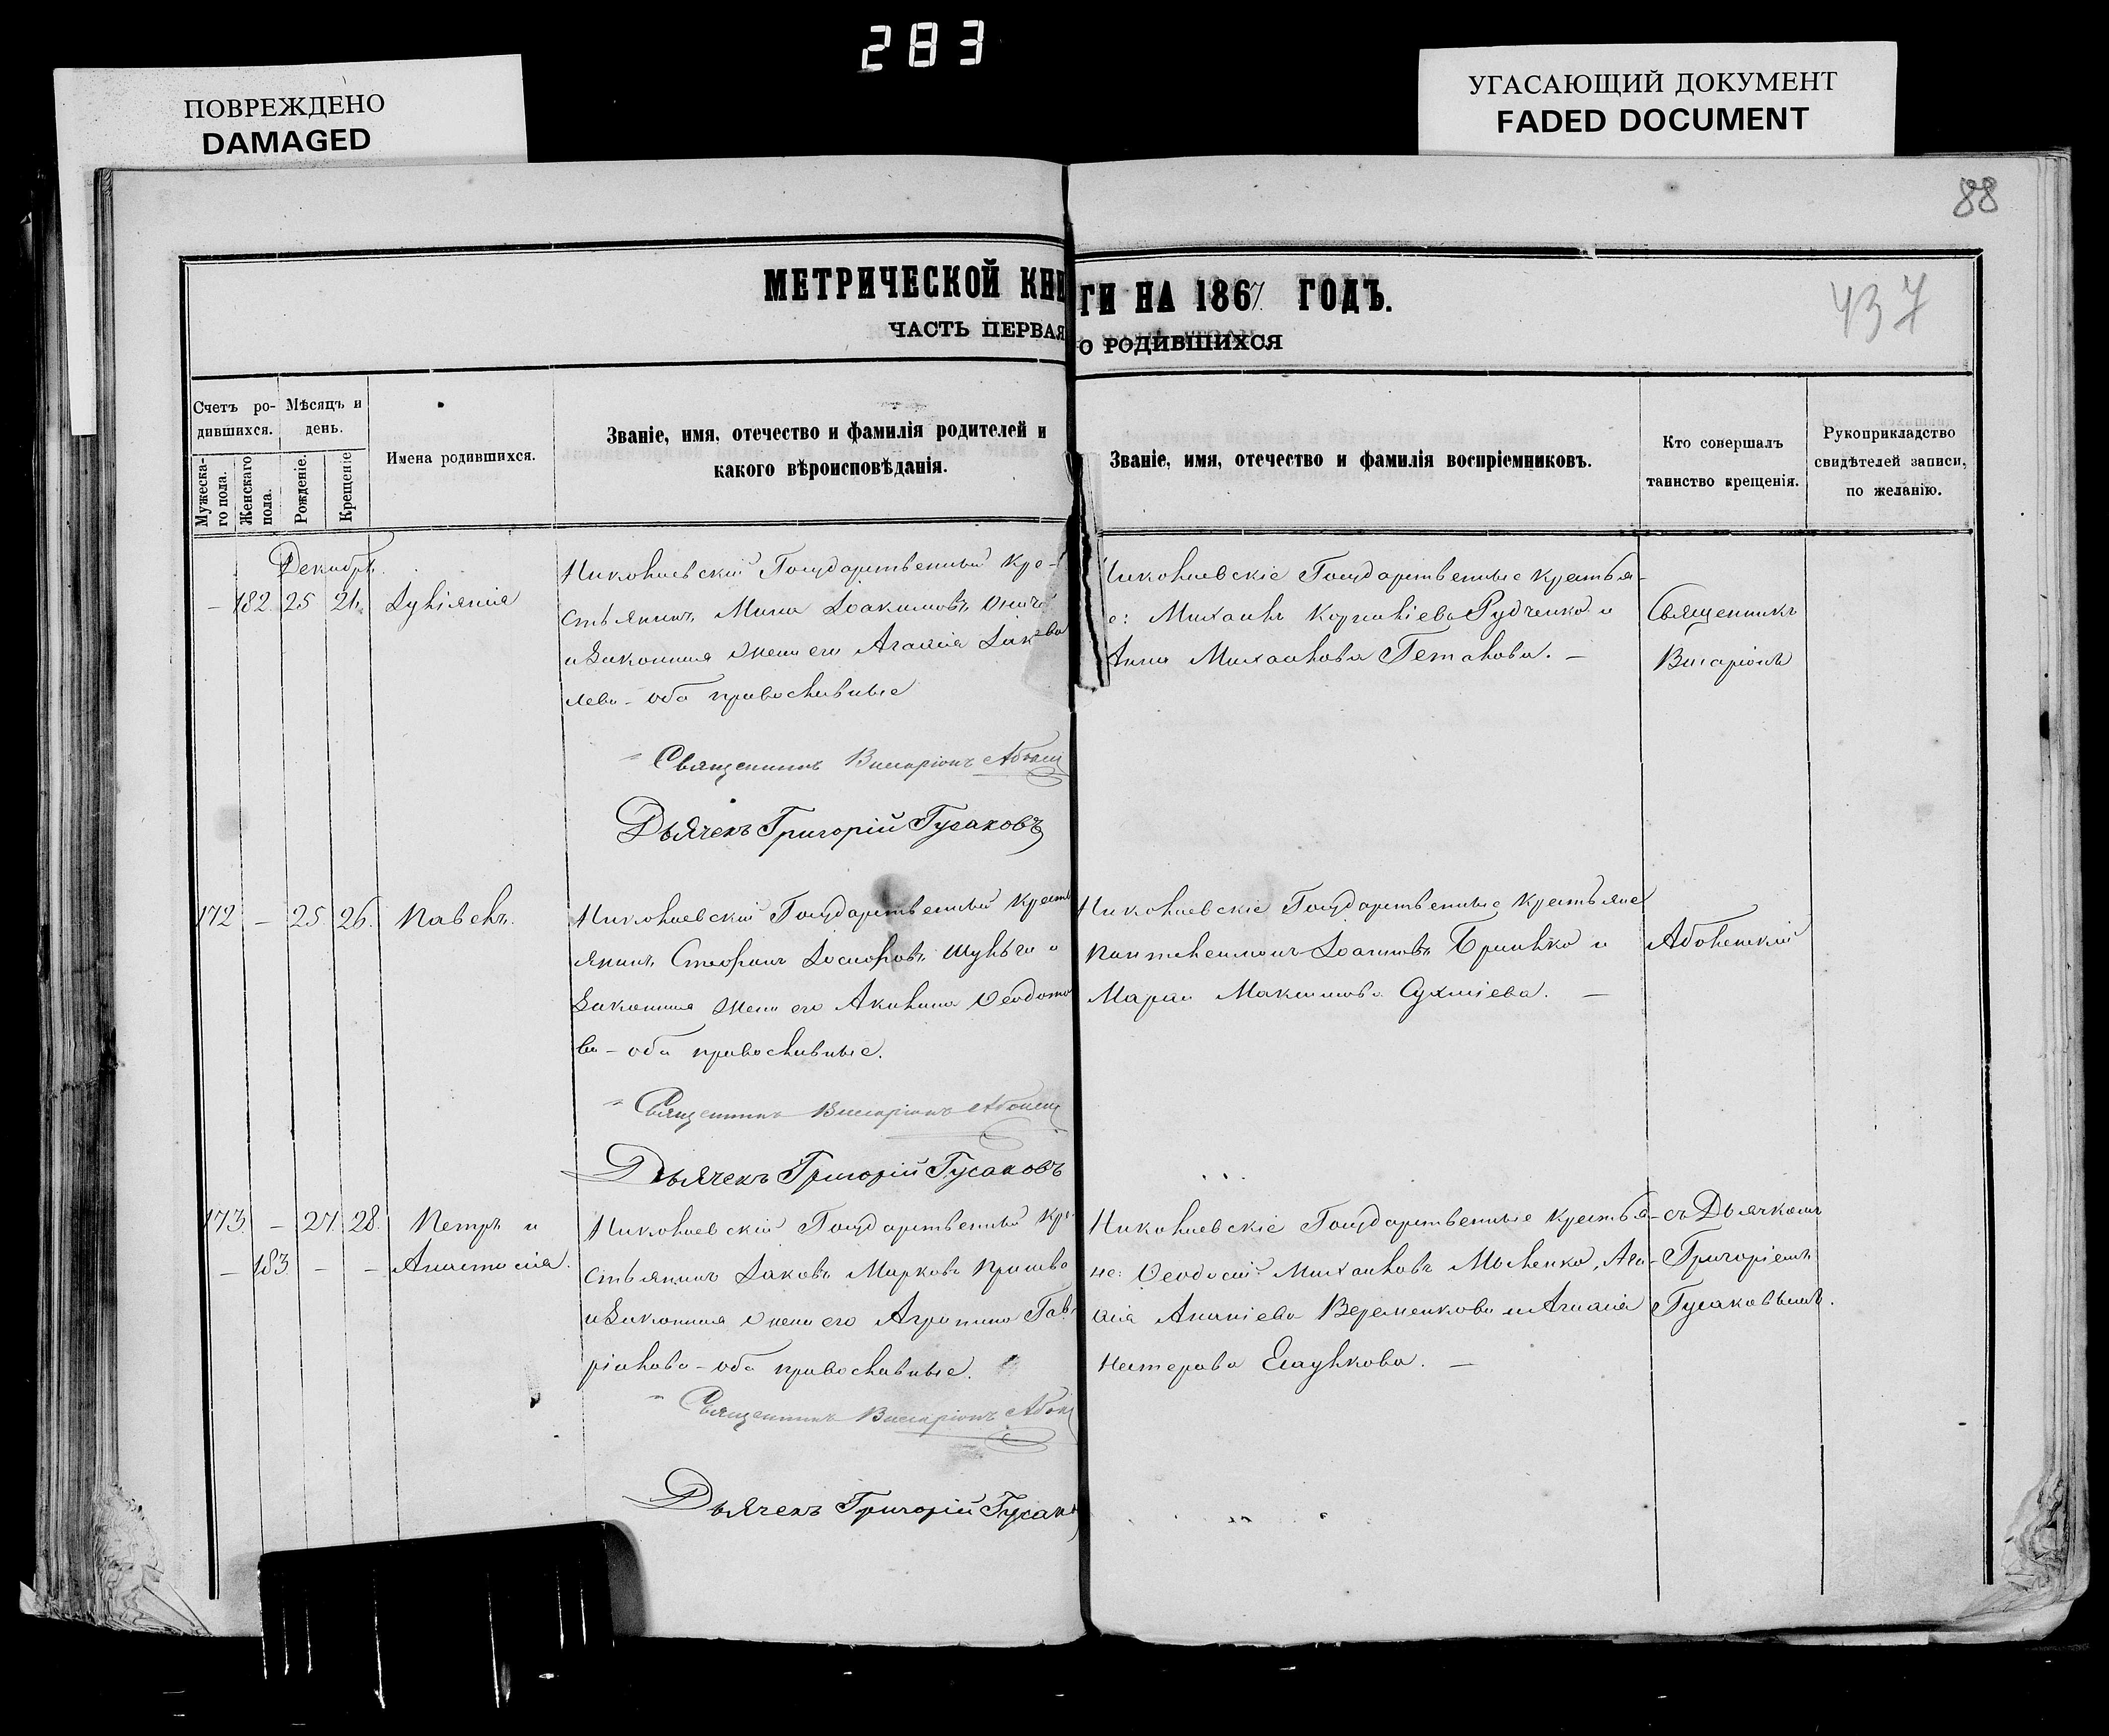 283
ПОВРЕЖДЕНО
DAMAGED
УГАСАЮЩИЙ ДОКУМЕНТ
FADED DOCUMENT
88
437
МЕТРИЧЕСКОЙ КНИ
ГИ НА 1867 ГОДЪ.
ЧАСТЬ ПЕРВАЯ
О РОДИВШИХСЯ
Счетъ ро-
дившихся.
Мѣсяцъ и
день.
Мужеска-
го пола.
Женскаго
пола.
Рожденіе.
Крещеніе
Имена родившихся.
Званіе, имя, отечество и фамилія родителей и
какого вѣроисповѣданія.
Званіе, имя, отечество и фамилія воспріемниковъ.
Кто совершалъ
таинство крещенія.
Рукоприкладство
свидѣтелей записи,
по желанію.
Декабрь.
– 182 25
Николаевскій Государственный Кре-
стьянинъ Мина Іоакимовъ
и Законная жена его Агафія Іак
лева – оба православные
Священникъ Висаріонъ
Дьячекъ Григорій Гусаковъ
иколаевскіе Государственные крестья-
е: Михаилъ Корниліевъ Рудченко и
Анна Михайлова
Священникъ
Висаріонъ
172 – 25 26. Павелъ.
Николаевскій Государственный Кресть
янинъ Стефанъ Іосифовъ Шульга и
Законная жена его Акилина Ѳеодото
ва – оба православные.
Священникъ Висаріонъ
Дьячекъ Григорій Гусаковъ
Николаевскіе Государственные Крестьяне
Пантелеимонъ Іоанновъ и
Марія Максимова –
173. – 27. 28. Петръ и
– 183 – – Анастасія.
Николаевскій Государственный Кре
стьянинъ Іаковъ Марковъ
и Законная жена его Агрипина Гав
ріилова – оба православные.
Священникъ Висаріонъ
Дьячекъ Григорій Гусак
Николаевскіе Государственные Крестья-
не: Ѳеодосій Михаиловъ
Ананіева Веременкова и
Нестерова –
съ Дьячкомъ
Григоріемъ
Гусаковымъ.